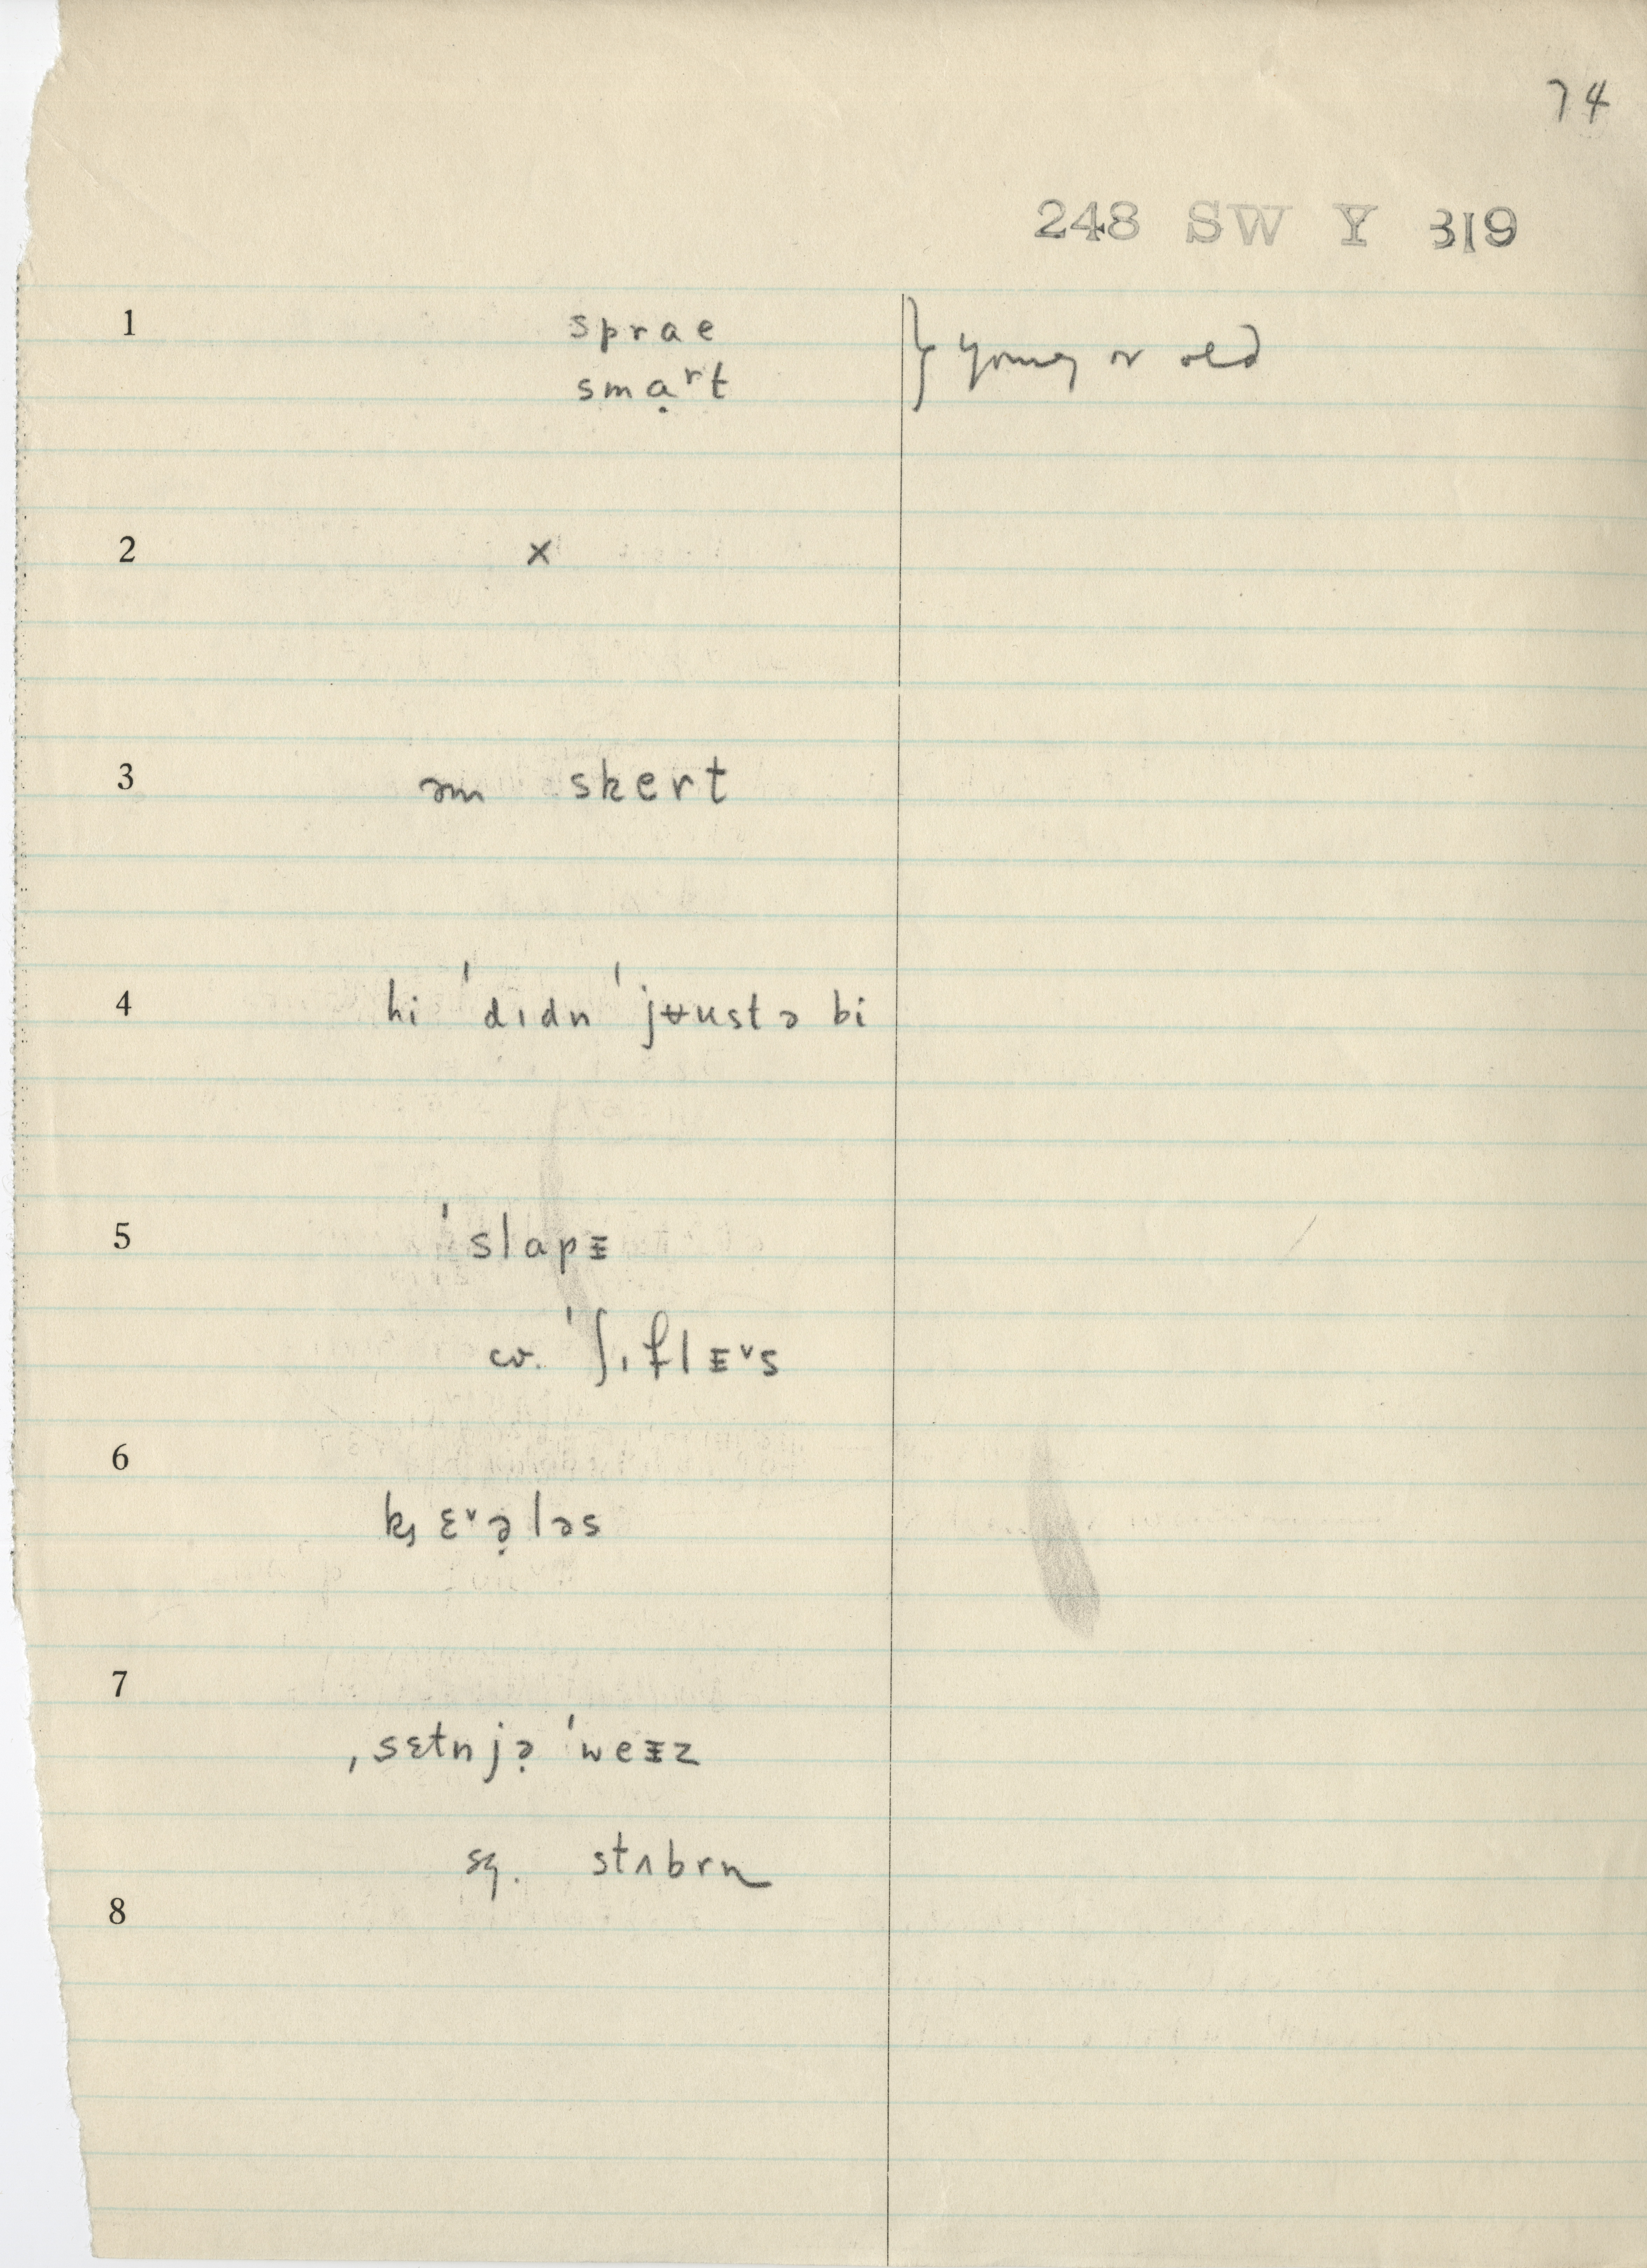 74
248 SW Y 319
1 sprae } young or old
smạʳt
2 x
3 əm skert
4 hi ˈdɪdn ˈjʉustə bi
5 ˈslapɪ̵
cv. ˈʃɪflɪ̵ᵛs
6 kȷɛᵛə̣ləs
7 ˌsɛtnjə̣ ˈweɪ̵z
sq. stʌbrn
8